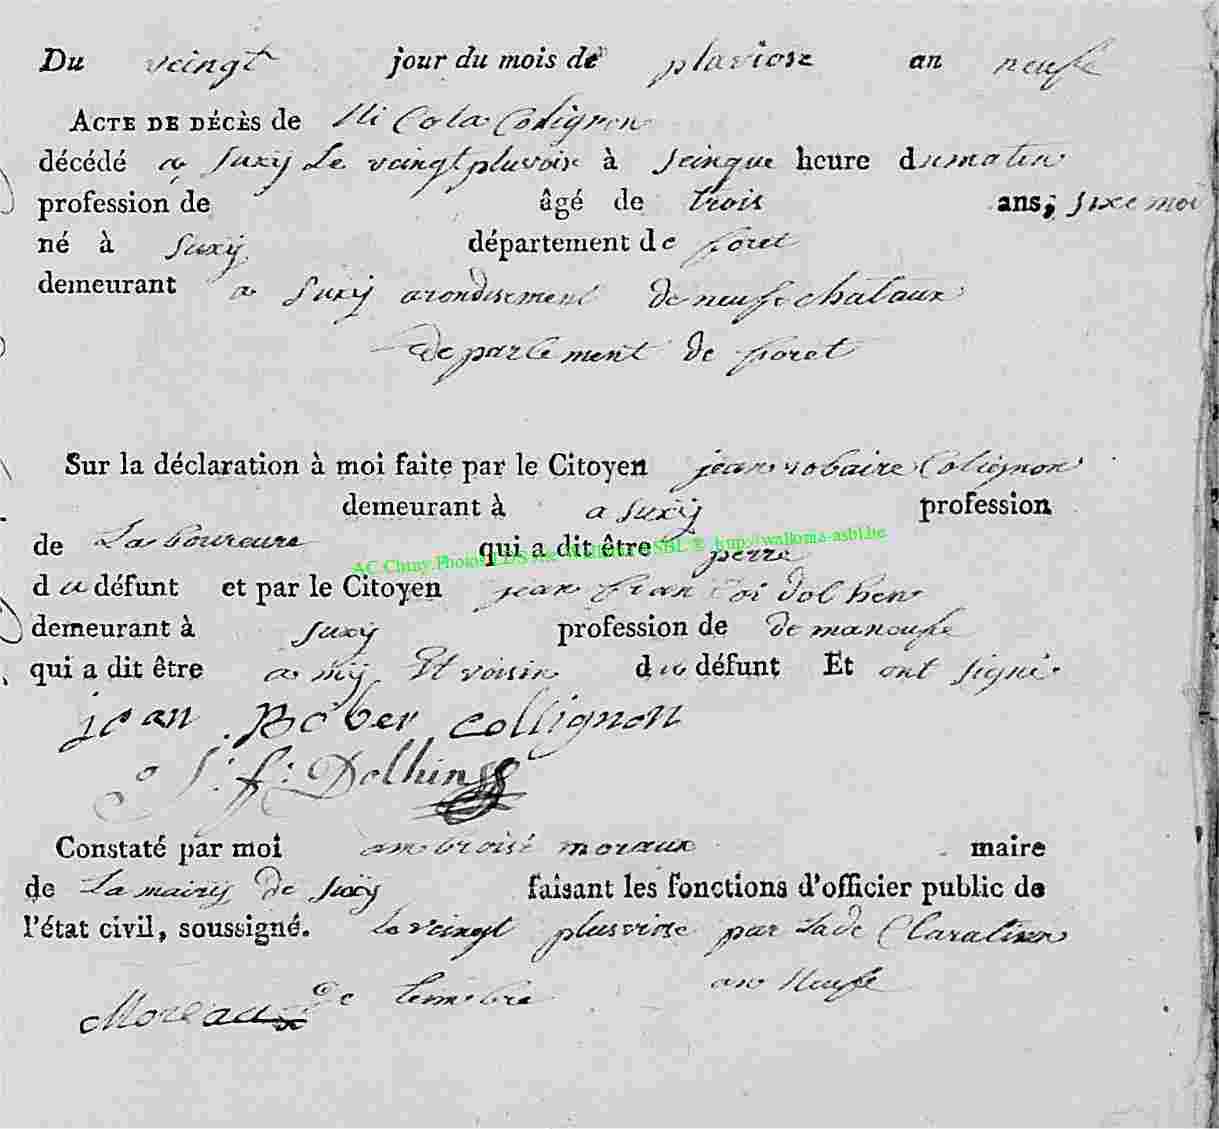 Du veingt jour du mois de plaviose an neufe
ACTE DE DÉCÈS de Ni Cola Colignon
décédé a suxy Le veingt pluvoise à seinque heure dumatin
profession de âgé de trois ans, sixe moi
né à suxÿ département de foret
demeurant a suxÿ arondisement de neufe chataux
departement de foret
Sur la déclaration à moi faite par le Citoyen jean robaire Colignon
demeurant à a suxÿ profession
de La boureure qui a dit être perre
AC Chiny Photos LDS via Wallonia ASBL ® http://wallonia-asbl.be
du défunt et par le Citoyen jean fran Coi dolhen
demeurant à suxÿ profession de de manoufe
qui a dit être a mÿ Et voisin du défunt Et ont signé
jean Rober collignon
J: f: Dolhin
Constaté par moi ambroisé moraux maire
de La mairÿ de suxÿ faisant les fonctions d'officier public de
l'état civil, soussigné. le veingt plusviose par Lade Claration
an Neufe
Moreaux